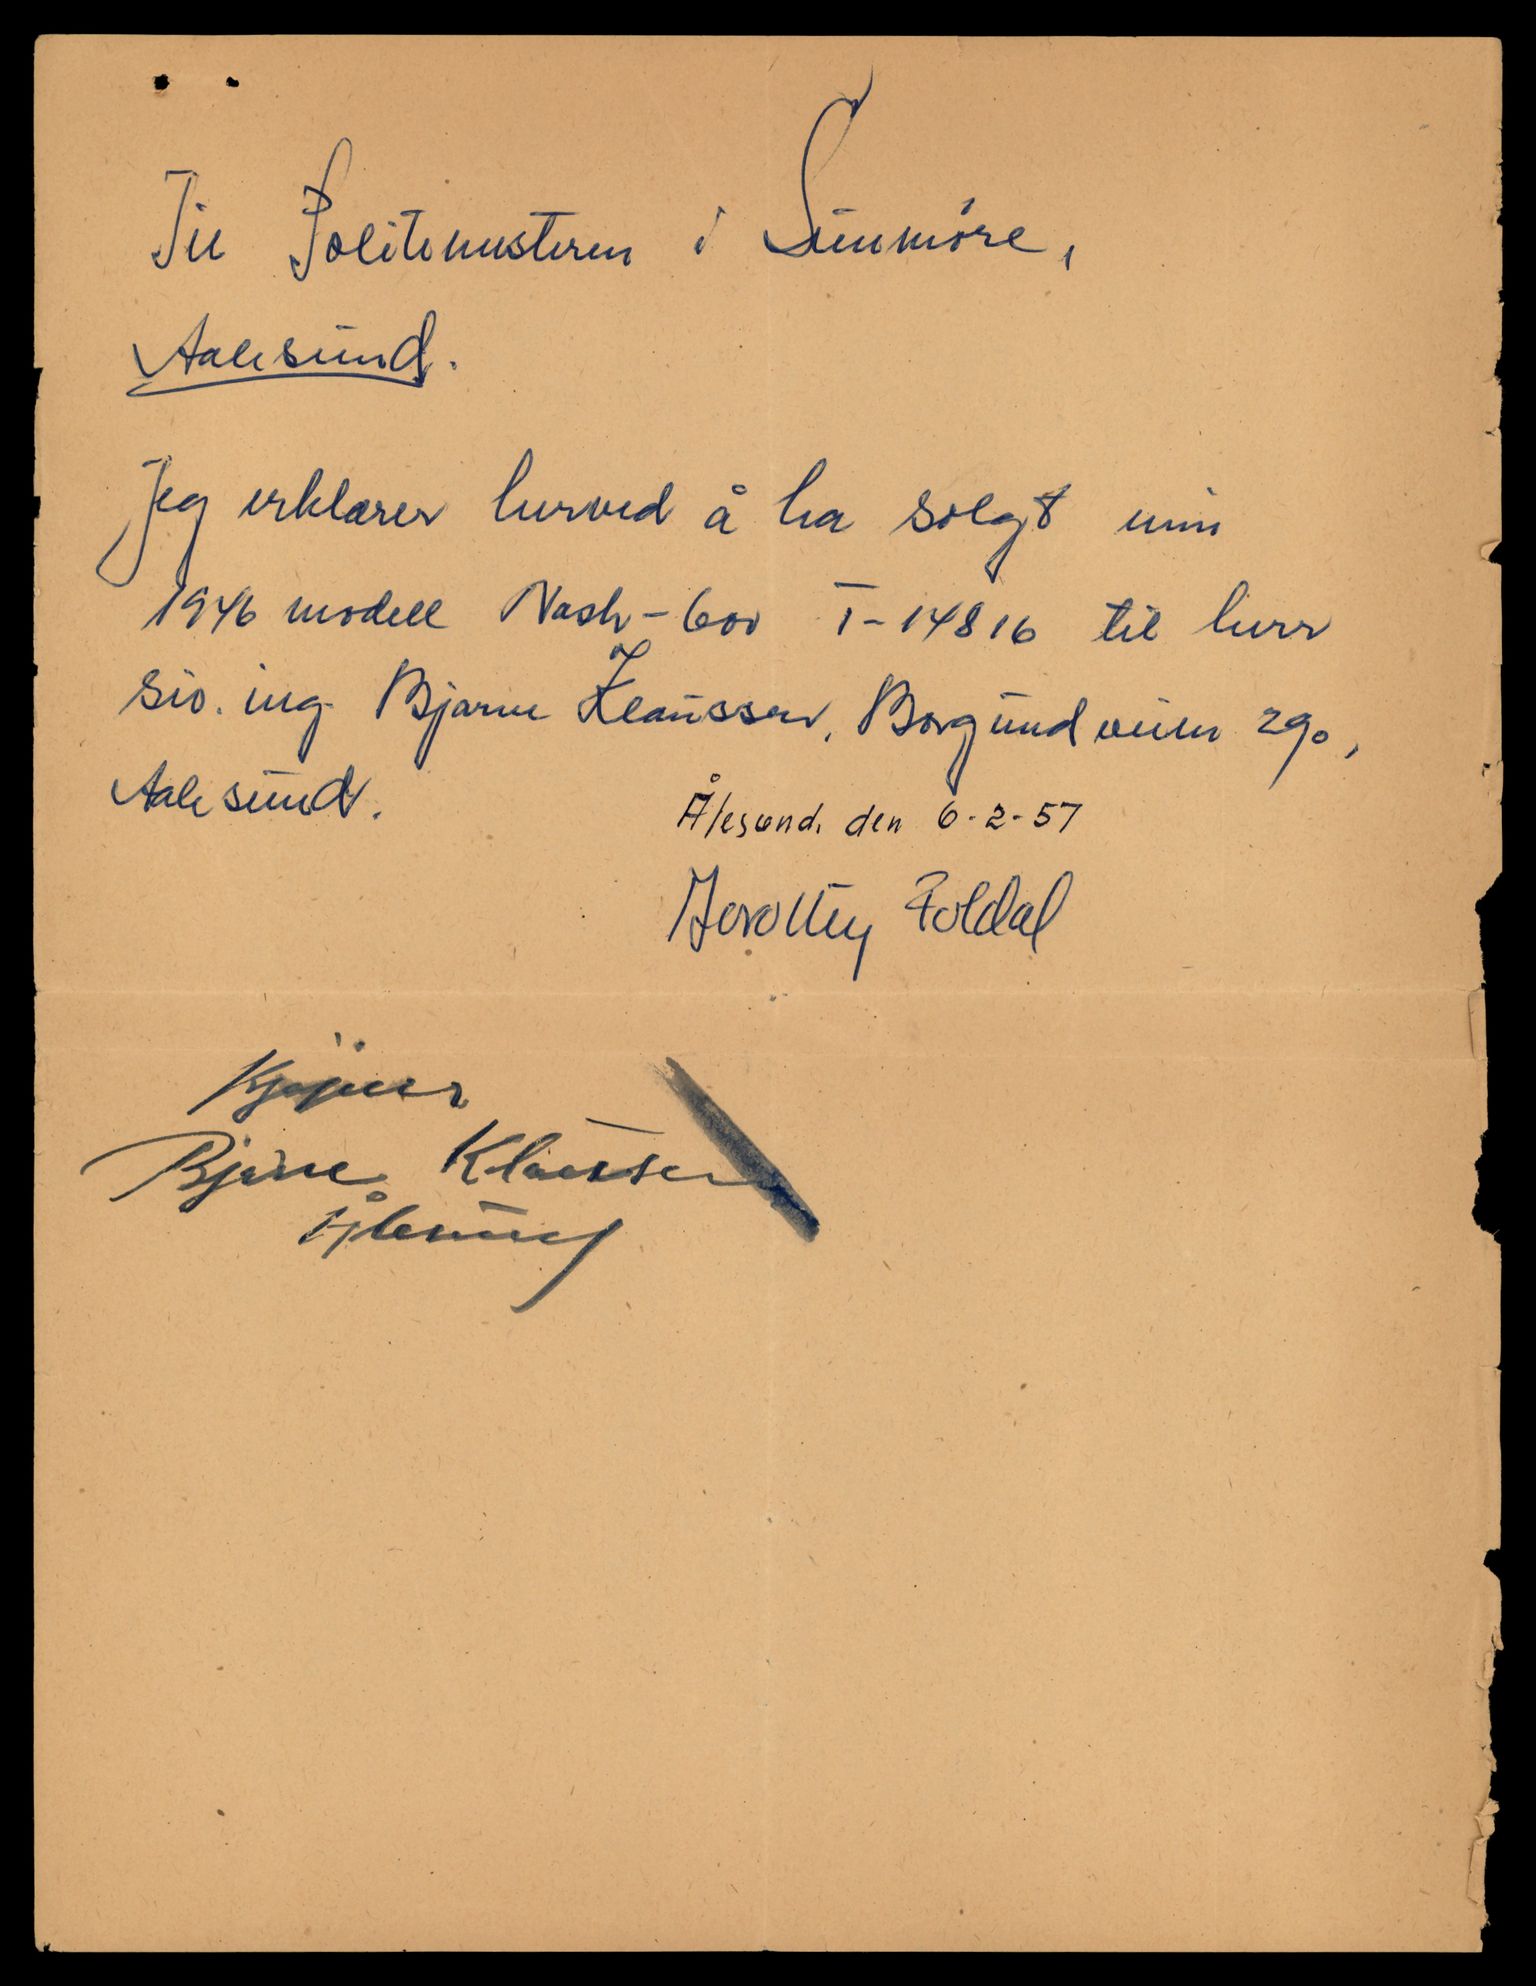 Til Politimesteren i Sunnmöre,
Aalesund.
Jeg erklærer herved å ha solgt min
1946 modell Nash-600 T-14816 til herr
siv. ing. Bjarne Klaussen, Borgundveien 290,
Aalesund.
Ålesund, den 6-2-57
Dorothy Foldal
Kjøper
Bjarne Klaussen
Ålesund